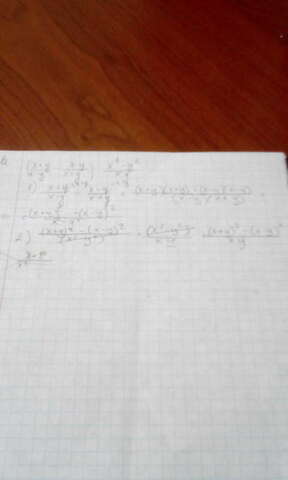 (x+y/x-y - x-y/x+y) · x²-y²/xy
1) x+y/x-y - x-y/x+y = (x+y)(x+y)-(x-y)(x-y)/(x-y)(x+y) =
= (x+y)²-(x-y)²/x²-y²
2) (x+y)²-(x-y)²/(x²-y²) · (x²-y²)/xy = (x+y)²-(x-y)²/xy